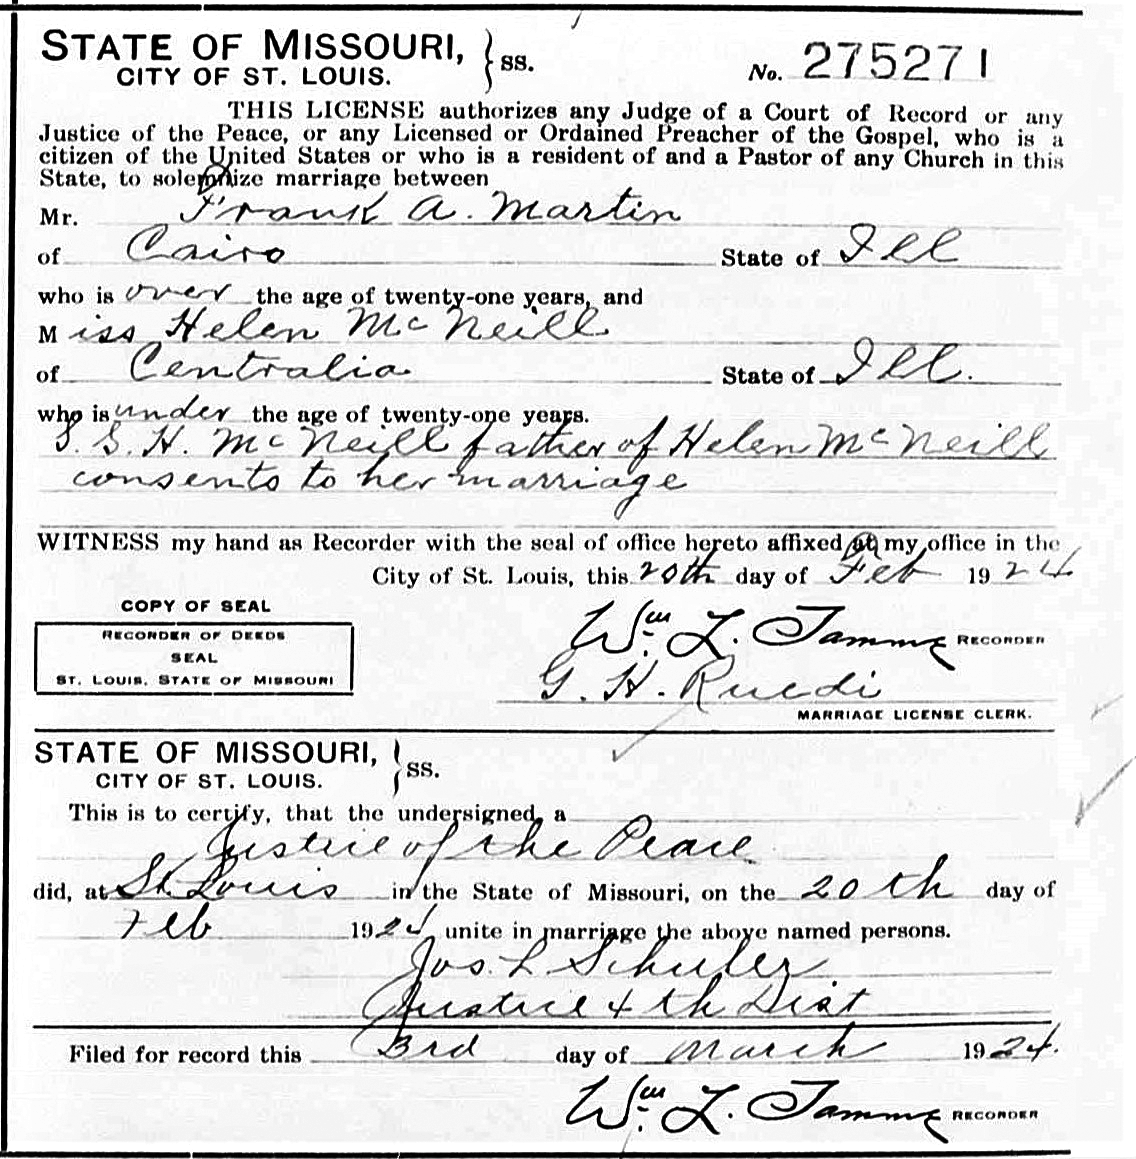 STATE OF MISSOURI, } ss. No. 275271
CITY OF ST. LOUIS.
THIS LICENSE authorizes any Judge of a Court of Record or any
Justice of the Peace, or any Licensed or Ordained Preacher of the Gospel, who is a
citizen of the United States or who is a resident of and a Pastor of any Church in this
State, to solemnize marriage between
Mr. Frank A. Martin
of Cairo State of Ill
who is over the age of twenty-one years, and
Miss Helen McNeill
of Centralia State of Ill.
who is under the age of twenty-one years.
S. S. H. McNeill father of Helen McNeill
consents to her marriage
WITNESS my hand as Recorder with the seal of office hereto affixed at my office in the
City of St. Louis, this 20th day of Feb 1924
COPY OF SEAL
RECORDER OF DEEDS
SEAL
ST. LOUIS, STATE OF MISSOURI
Wm. L. Tamme RECORDER
G. H. Ruedi
MARRIAGE LICENSE CLERK.
STATE OF MISSOURI, } ss.
CITY OF ST. LOUIS.
This is to certify, that the undersigned, a
Justice of the Peace
did, at St. Louis in the State of Missouri, on the 20th day of
Feb 1924 unite in marriage the above named persons.
Jos. L. Schuler
Justice 4th Dist
Filed for record this 3rd day of March 1924.
Wm. L. Tamme RECORDER